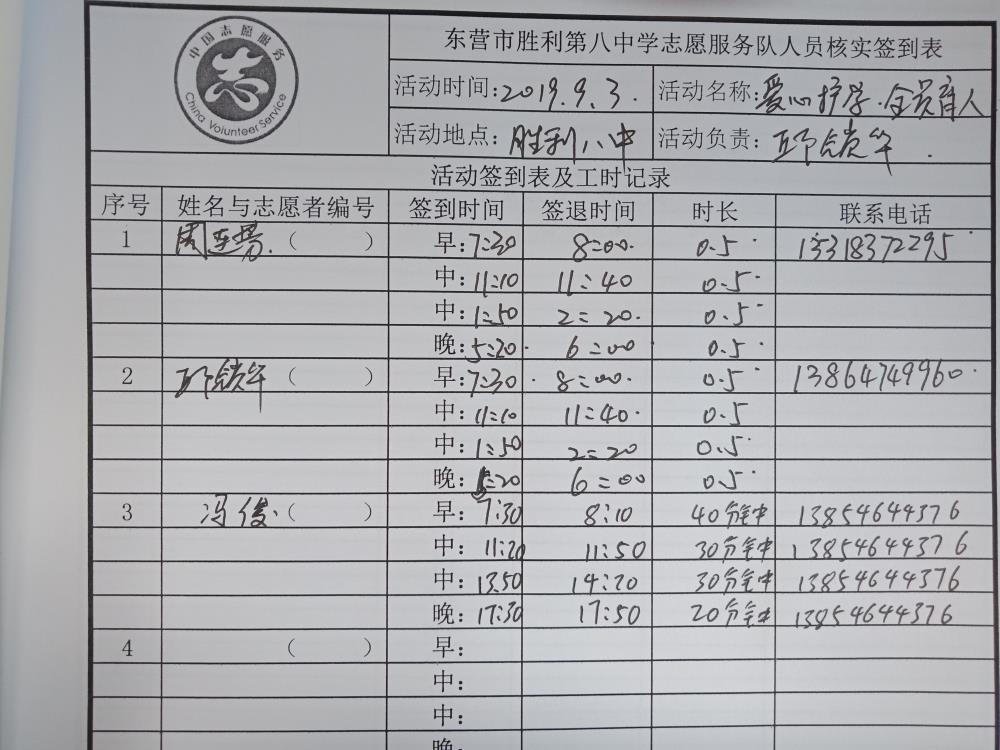 中国志愿服务
志
China Volunteer Service
东营市胜利第八中学志愿服务队人员核实签到表
活动时间:2019.9.3. 活动名称:爱心护学.全员育人
活动地点:胜利八中 活动负责:邱锁华.
活动签到表及工时记录
序号 姓名与志愿者编号 签到时间 签退时间 时长 联系电话
1 周连芳.( ) 早:7:30 8:00. 0.5 13318372295
中:11:10 11:40 0.5
中:1:50 2:20. 0.5
晚:5:20. 6:00 0.5
2 ( ) 早:7:30. 8:00. 0.5 13864749960.
中:11:10 11:40. 0.5
中:1:50 2:20 0.5
晚:5:20 6:00 0.5
3 冯俊.( ) 早:7:30 8:10 40分钟 13854644376
中:11:20 11:50 30分钟 13854644376
中:13:50 14:20 30分钟 13854644376
晚:17:30 17:50 20分钟 13854644376
4 ( ) 早:
中:
中:
晚